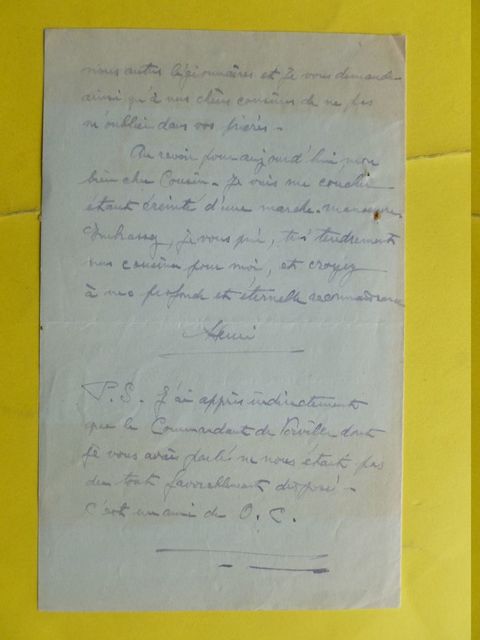 nous autres légionnaires et je vous demande
ainsi qu'à nos chères cousines de ne pas
m'oublier dans vos prières -
Au revoir pour aujourd'hui mon
bien cher Cousin - Je vais me coucher
étant éreinté d'une marche-manoeuvre.
Embrassez, je vous prie, très tendrement
nos cousines pour moi, et croyez
à ma profonde et éternelle reconnaissance
Henri
P.S. J'ai appris indirectement
que le Commandant de dont
je vous avais parlé ne nous était pas
du tout favorablement disposé -
C'est un ami de O. C.